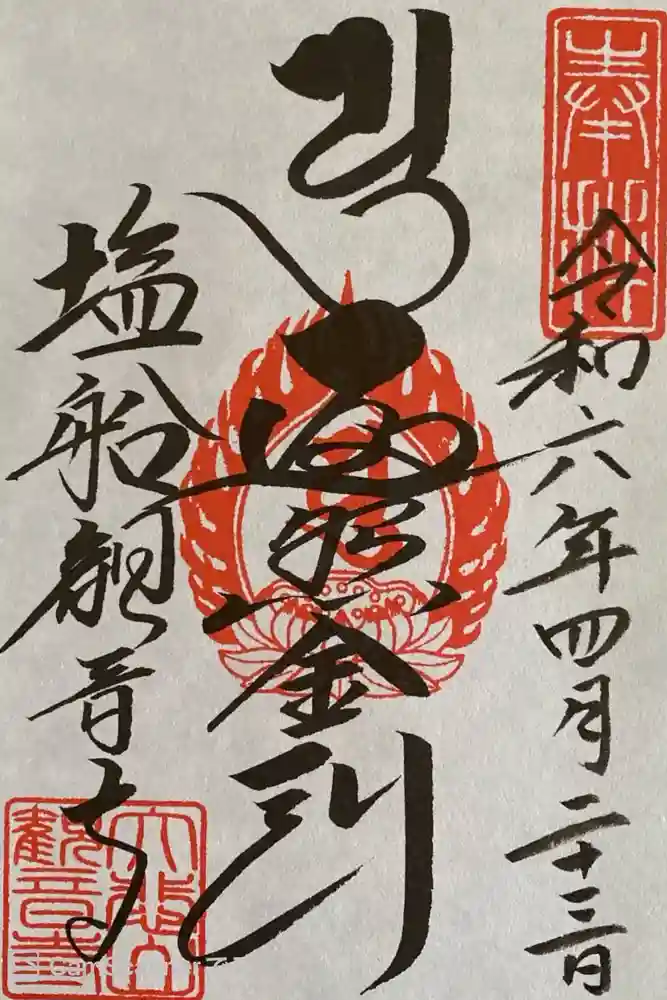 奉拝
令和六年四月二十三日
遍照金剛
塩船観音寺
大悲山
觀音寺